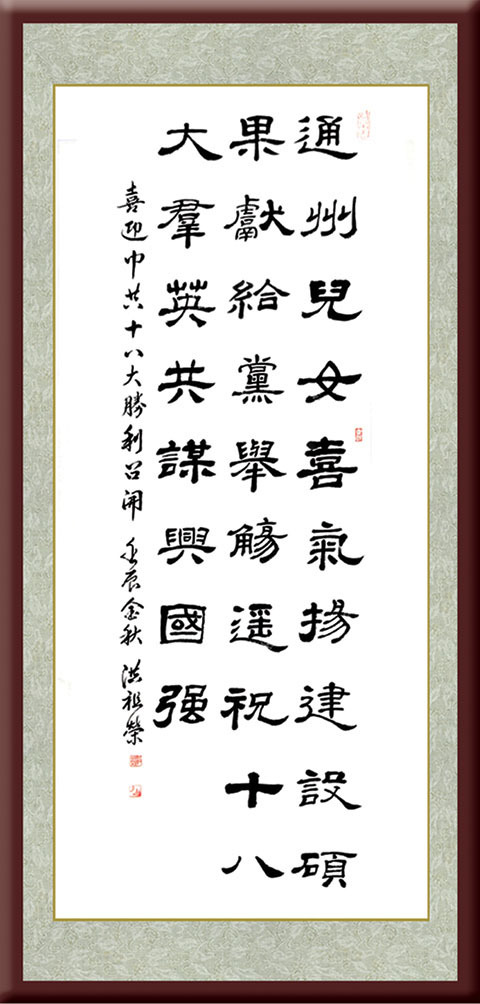 通州兒女喜氣揚建設碩
果獻給黨舉觴遥祝十八
大羣英共謀興國强
喜迎中共十八大勝利召開 壬辰金秋 洪祖榮